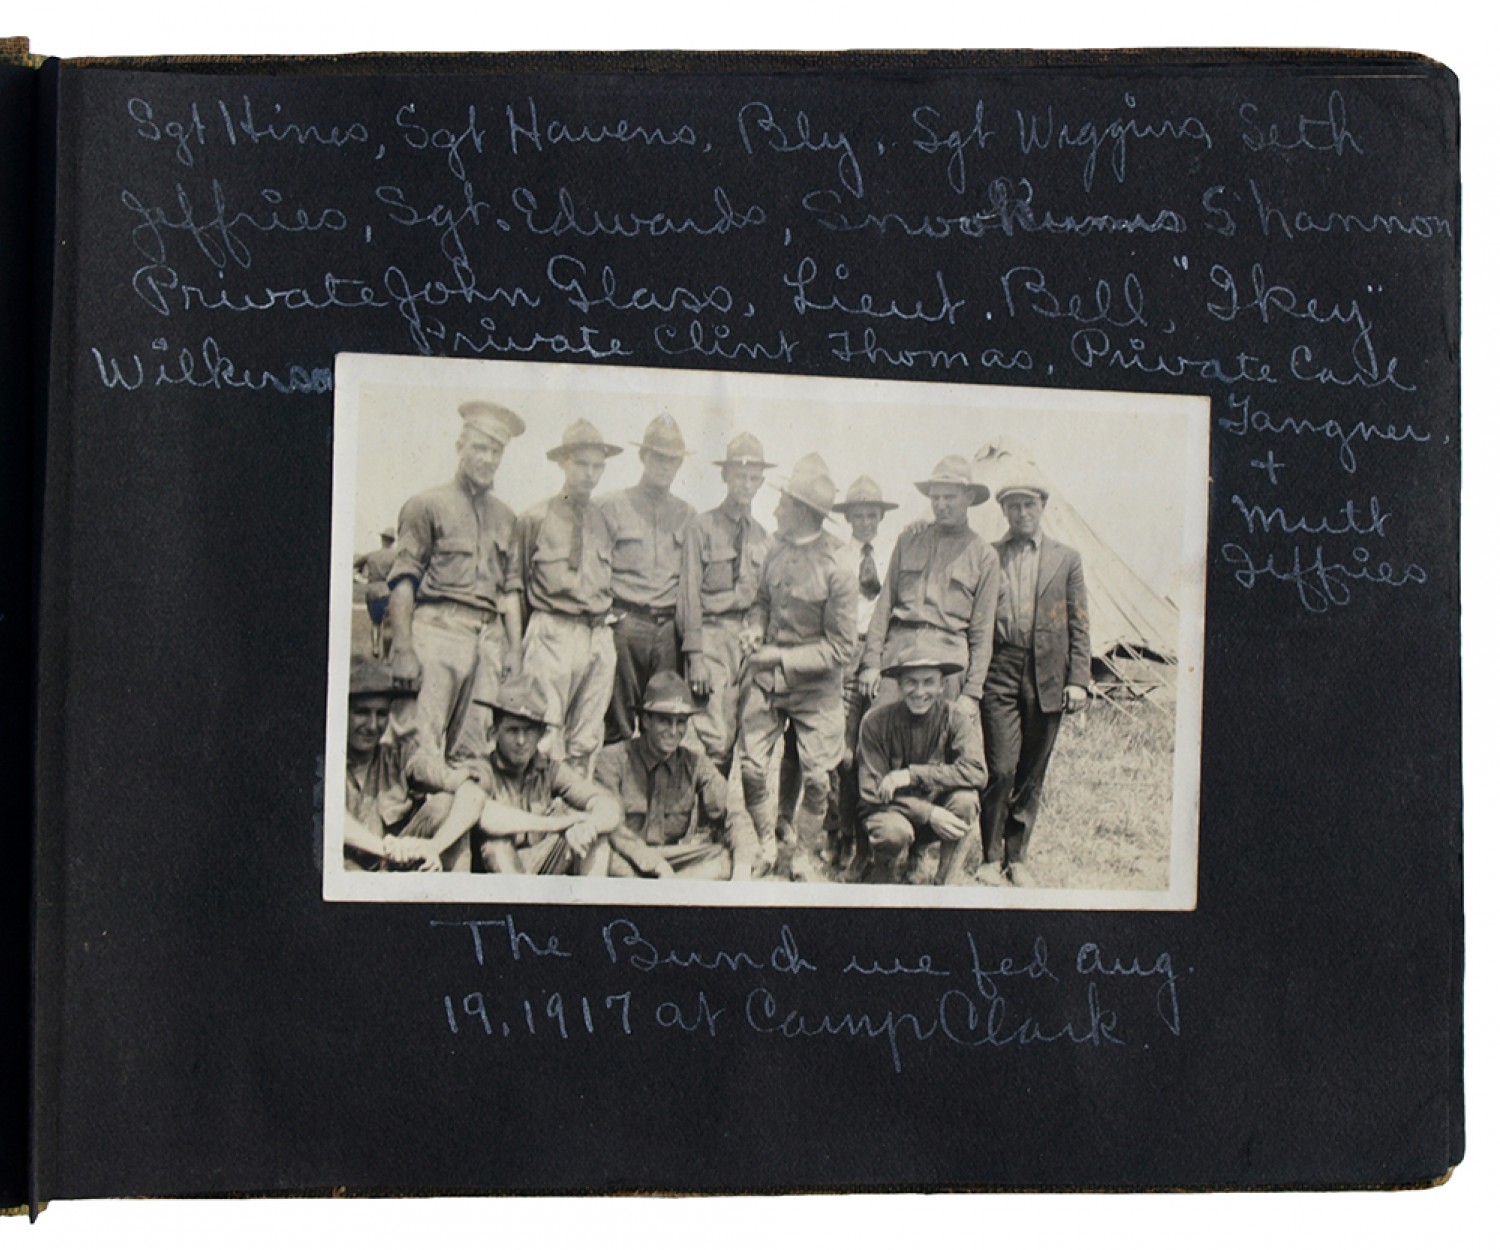 Sgt Hines, Sgt Havens, Bly, Sgt Wiggins Seth
Jeffries, Sgt. Edwards, Snookums Shannon
Private John Glass, Lieut. Bell, "Ikey"
Wilkerson Private Clint Thomas, Private Carl
Tangner.
+
Mutt
Jeffries
The Bunch we fed Aug.
19, 1917 at Camp Clark